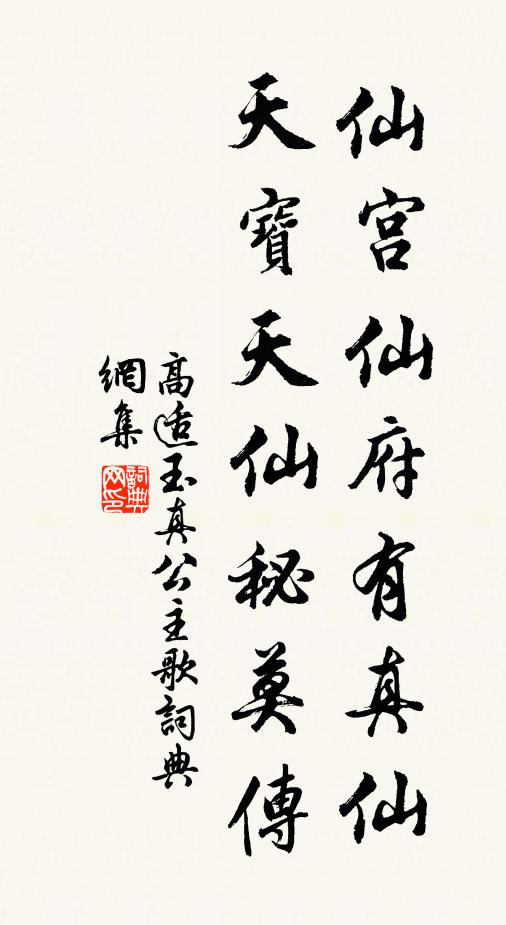 仙宮仙府有真仙
天寶天仙秘莫傳
高适玉真公主歌詞典
網集
詞典網印